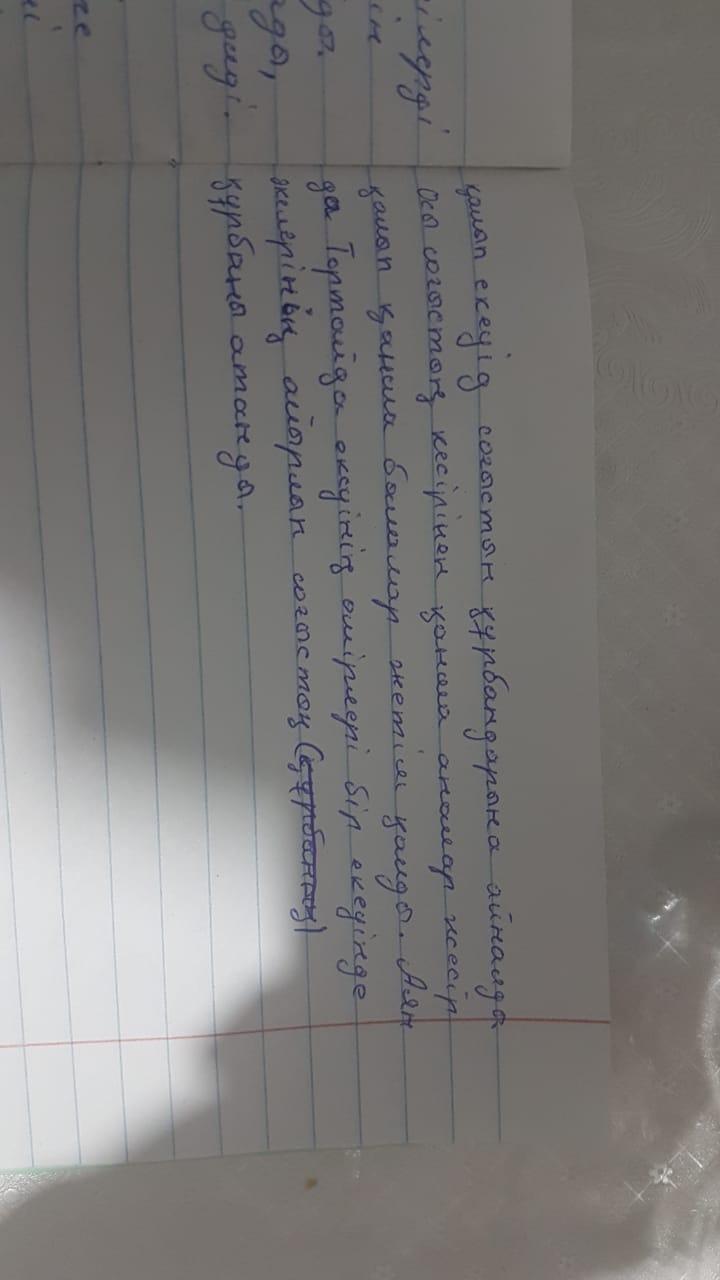 қалып екеуід соғыстын құрбандарына айналды
Осы соғыстың кесірінен қаншама аналар жесір
қалып қаншама балалар жетім қалды. Аян
да Тортайда екеуінің өмірлері бір екеуінде
әкелерінің айырлып соғыстың (құрбаның)
құрбаны атанды.
ілерді
ін
ды.
лды,
диді.
ге